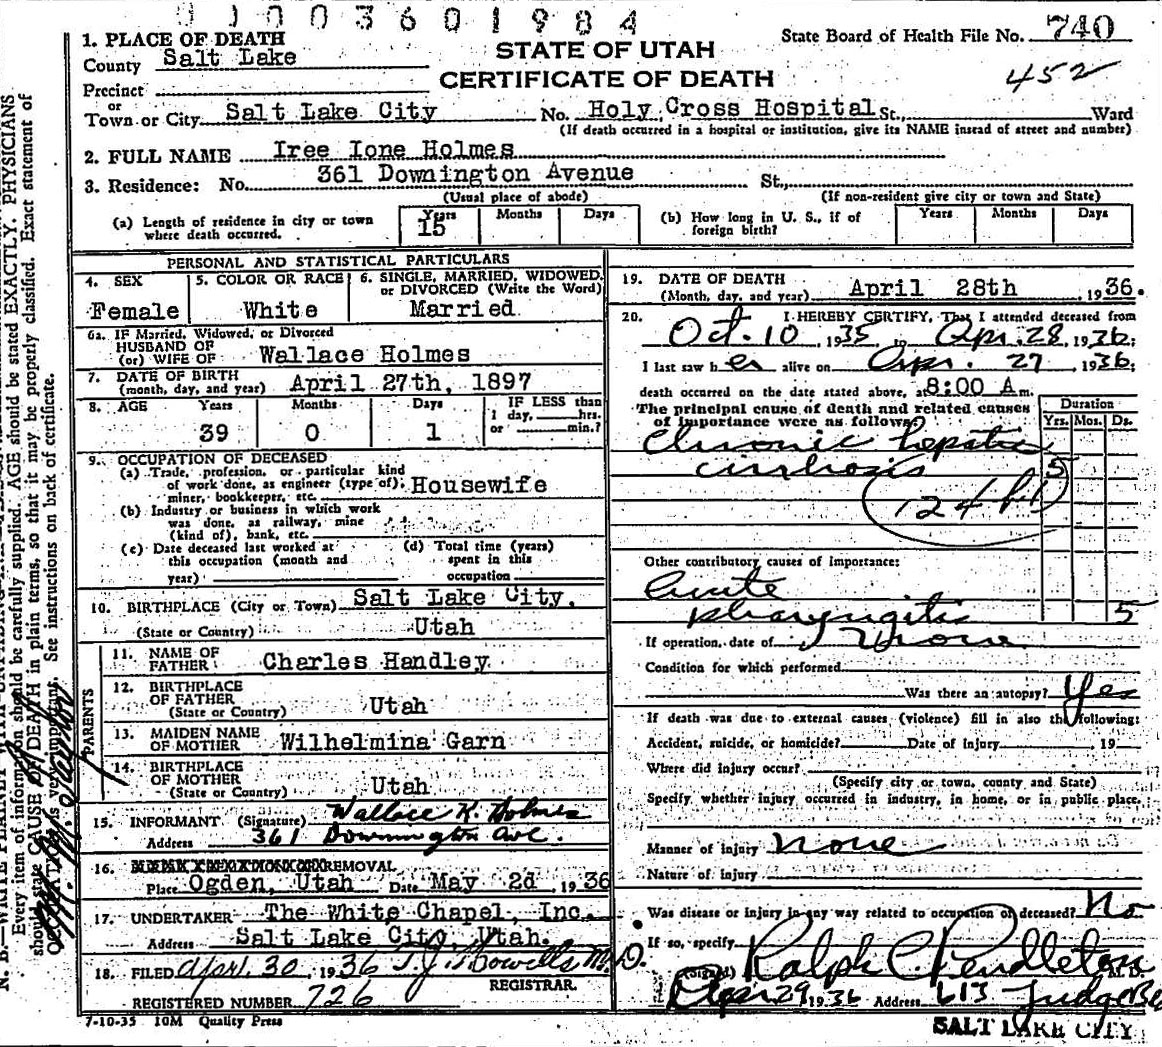 0100360 1984
1. PLACE OF DEATH
County Salt Lake
STATE OF UTAH
CERTIFICATE OF DEATH
State Board of Health File No. 740
452
Precinct
or
Town or City Salt Lake City No. Holy Cross Hospital St., Ward
(If death occurred in a hospital or institution, give its NAME instead of street and number)
2. FULL NAME Iree Ione Holmes
3. Residence: No. 361 Downington Avenue St.,
(Usual place of abode) (If non-resident give city or town and State)
(a) Length of residence in city or town where death occurred. Years 15 Months Days
(b) How long in U. S., if of foreign birth? Years Months Days
PERSONAL AND STATISTICAL PARTICULARS
4. SEX Female
5. COLOR OR RACE White
6. SINGLE, MARRIED, WIDOWED, or DIVORCED (Write the Word) Married
6a. IF Married, Widowed, or Divorced
HUSBAND OF
(or) WIFE OF Wallace Holmes
7. DATE OF BIRTH
(month, day, and year) April 27th, 1897
8. AGE Years Months Days IF LESS than
1 day, hrs.
39 0 1 or min.?
9. OCCUPATION OF DECEASED
(a) Trade, profession, or particular kind
of work done, as engineer (type of), Housewife
miner, bookkeeper, etc.
(b) Industry or business in which work
was done, as railway, mine
(kind of), bank, etc.
(c) Date deceased last worked at
this occupation (month and
year)
(d) Total time (years)
spent in this
occupation
10. BIRTHPLACE (City or Town) Salt Lake City,
(State or Country) Utah
PARENTS
11. NAME OF
FATHER Charles Handley
12. BIRTHPLACE
OF FATHER
(State or Country) Utah
13. MAIDEN NAME
OF MOTHER Wilhelmina Garn
14. BIRTHPLACE
OF MOTHER
(State or Country) Utah
15. INFORMANT (Signature) Wallace K. Holmes
Address 361 Downington Ave.
16. REMOVAL
Place Ogden, Utah Date May 2d, 1936
17. UNDERTAKER The White Chapel, Inc.
Address Salt Lake City, Utah.
18. FILED Apr. 30, 1936 T. J. Howells M.D.
REGISTRAR.
REGISTERED NUMBER 726
7-10-35 10M Quality Press
19. DATE OF DEATH
(Month, day, and year) April 28th, 1936.
20. I HEREBY CERTIFY, That I attended deceased from
Oct. 10, 1935 to Apr. 28, 1936;
I last saw her alive on Apr. 27, 1936;
death occurred on the date stated above, at 8:00 A m.
The principal cause of death and related causes
of importance were as follows:
Duration
Yrs. Mos. Ds.
Chronic hepatic
cirrhosis 5
Other contributory causes of importance:
Acute
pharyngitis 5
If operation, date of None
Condition for which performed
Was there an autopsy? Yes
If death was due to external causes (violence) fill in also the following:
Accident, suicide, or homicide? Date of injury 19
Where did injury occur?
(Specify city or town, county and State)
Specify whether injury occurred in industry, in home, or in public place,
Manner of injury none
Nature of injury
Was disease or injury in any way related to occupation of deceased? No
If so, specify
(Signed) Ralph C. Pendleton M.D.
Apr 29 1936 Address 613 Judge
SALT LAKE CITY
Every item of information should be carefully supplied. AGE should be stated EXACTLY. PHYSICIANS
should state CAUSE OF DEATH in plain terms, so that it may be properly classified. Exact statement of
OCCUPATION is very important. See instructions on back of certificate.